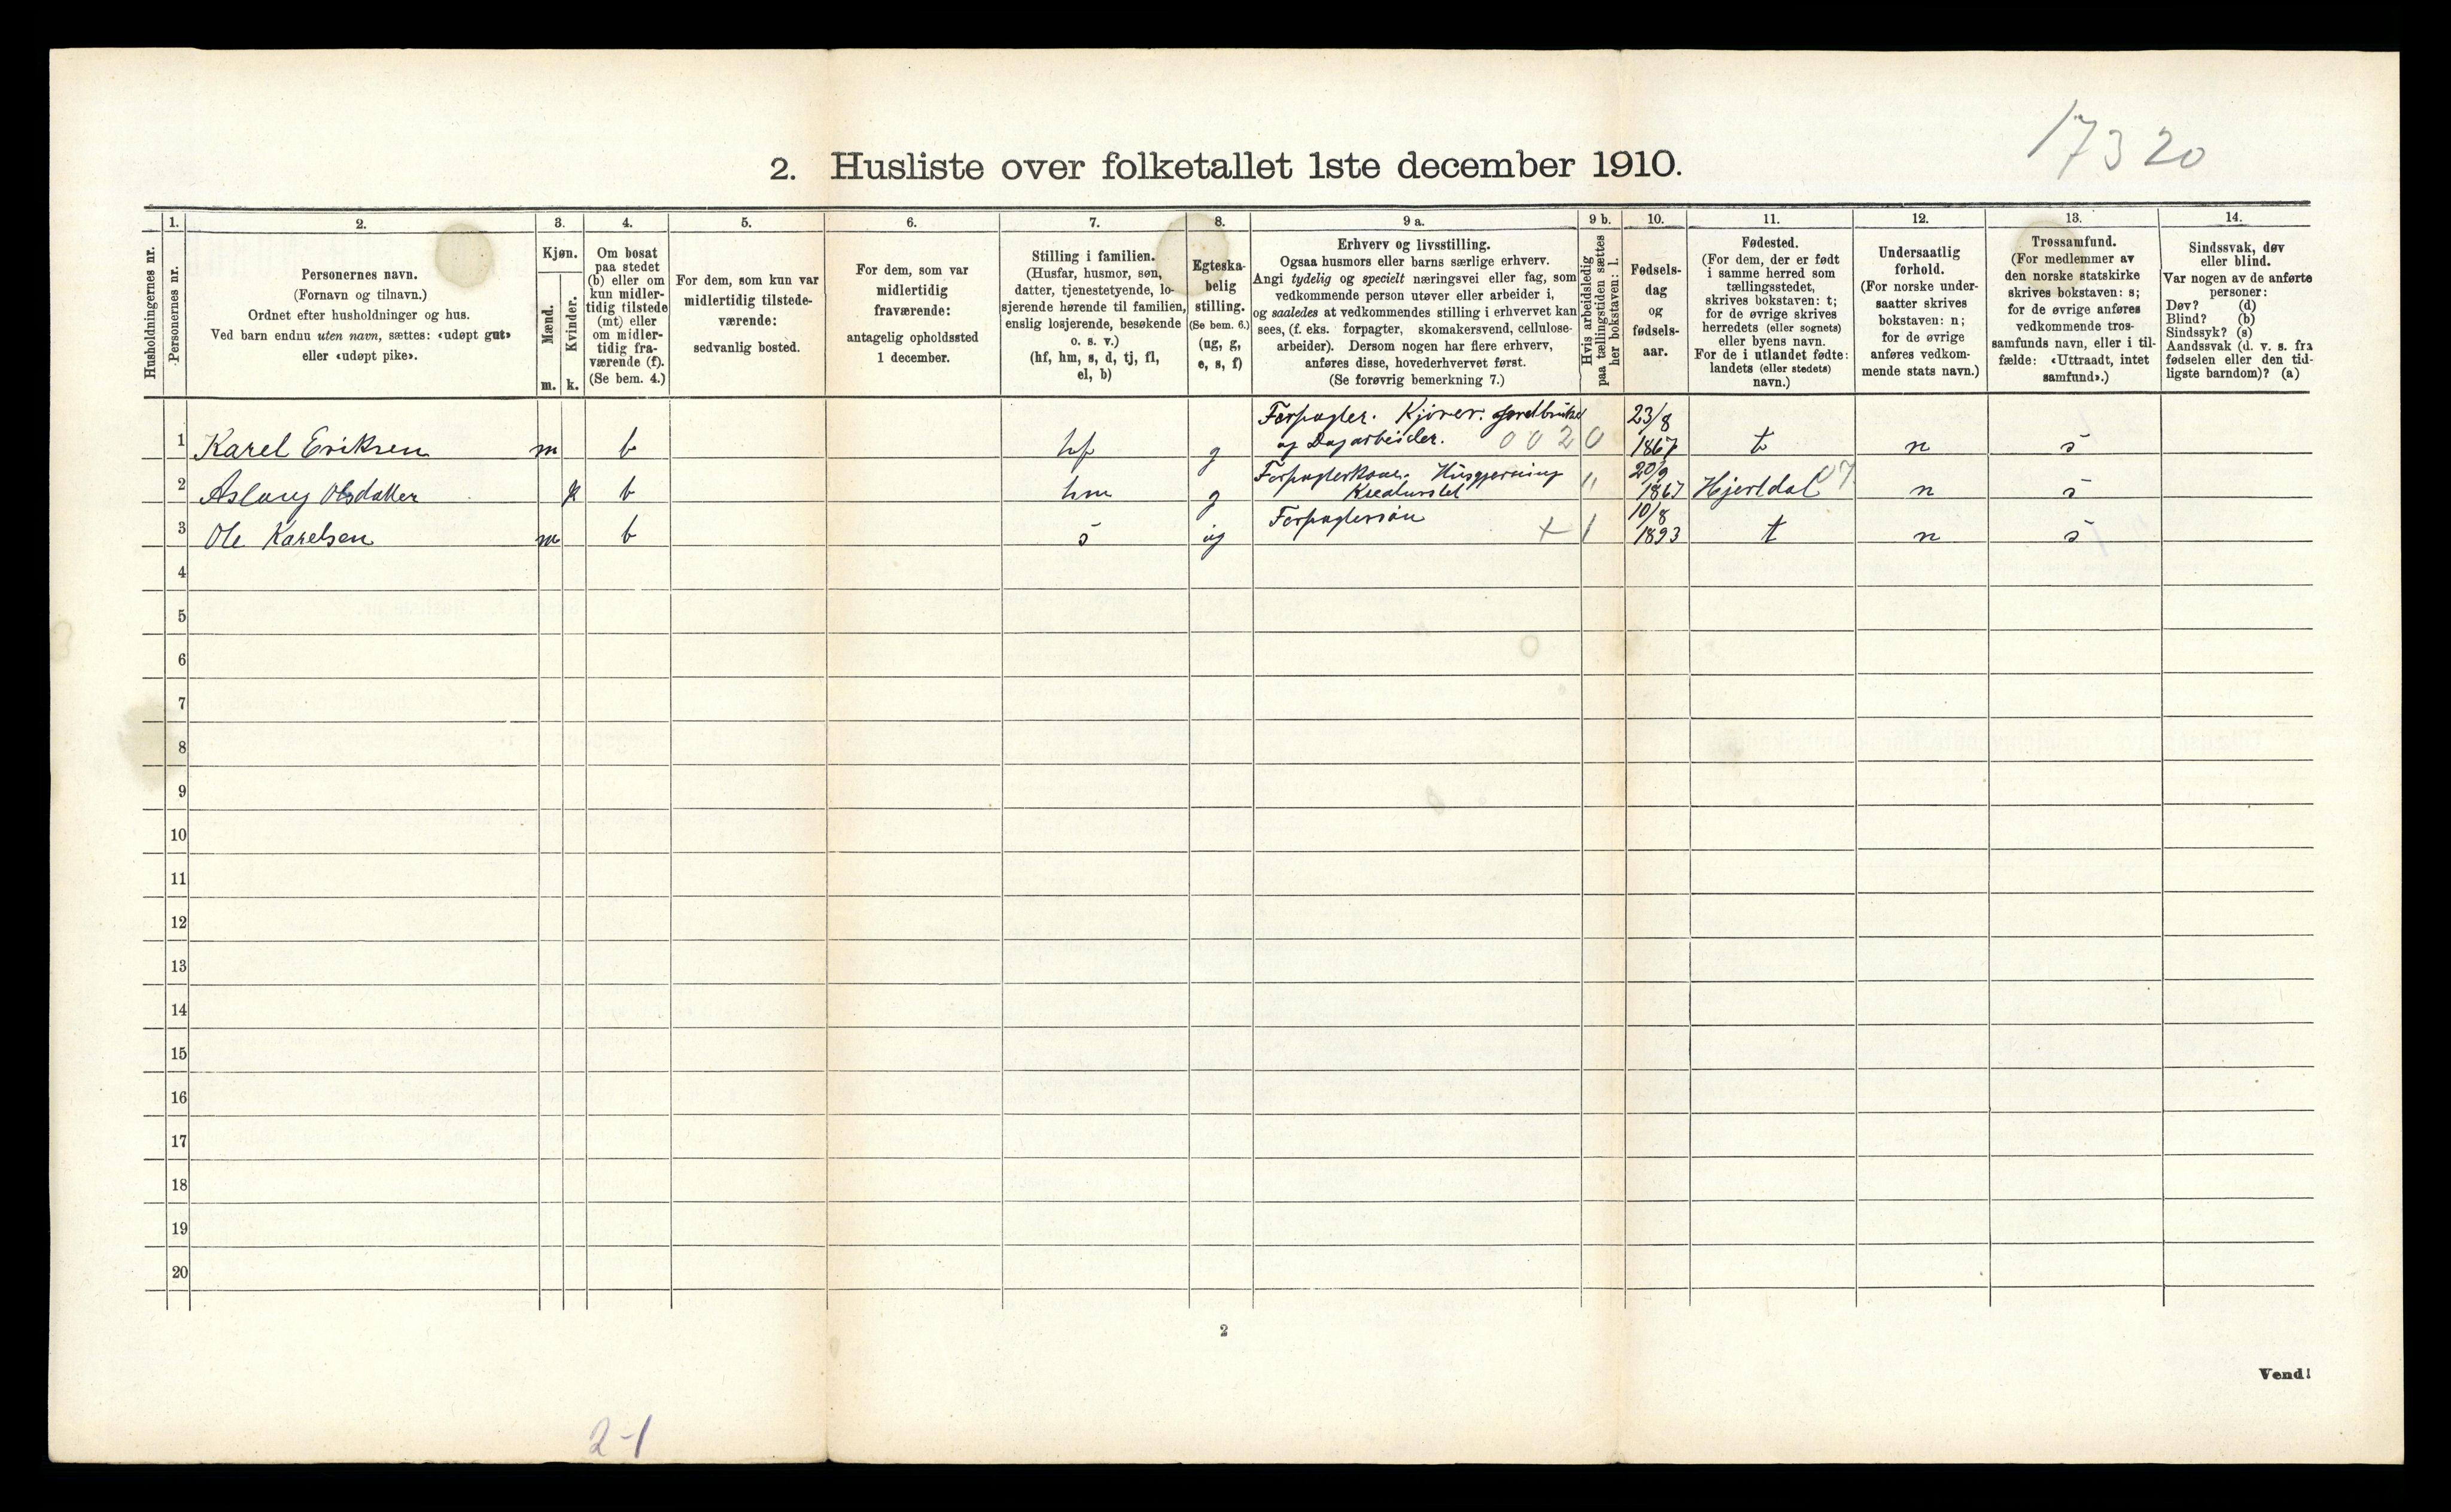 17320
2. Husliste over folketallet 1ste december 1910.
Husholdningernes nr.
1.
Personernes nr.
2.
Personernes navn.
(Fornavn og tilnavn.)
Ordnet efter husholdninger og hus.
Ved barn endnu uten navn, sættes: «udøpt gut»
eller «udøpt pike».
3.
Kjøn.
Mænd.
Kvinder.
m. k.
4.
Om bosat
paa stedet
(b) eller om
kun midler-
tidig tilstede
(mt) eller
om midler-
tidig fra-
værende (f).
(Se bem. 4.)
5.
For dem, som kun var
midlertidig tilstede-
værende:
sedvanlig bosted.
6.
For dem, som var
midlertidig
fraværende:
antagelig opholdssted
1 december.
7.
Stilling i familien.
(Husfar, husmor, søn,
datter, tjenestetyende, lo-
sjerende hørende til familien,
enslig losjerende, besøkende
o. s. v.)
(hf, hm, s, d, tj, fl,
el, b)
8.
Egteska-
belig
stilling.
(Se bem. 6.)
(ug, g,
e, s, f)
9 a.
Erhverv og livsstilling.
Ogsaa husmors eller barns særlige erhverv.
Angi tydelig og specielt næringsvei eller fag, som
vedkommende person utøver eller arbeider i,
og saaledes at vedkommendes stilling i erhvervet kan
sees, (f. eks. forpagter, skomakersvend, cellulose-
arbeider). Dersom nogen har flere erhverv,
anføres disse, hovederhvervet først.
(Se forøvrig bemerkning 7.)
9 b.
Hvis arbeidsledig
paa tællingstiden sættes
her bokstaven: l.
10.
Fødsels-
dag
og
fødsels-
aar.
11.
Fødested.
(For dem, der er født
i samme herred som
tællingsstedet,
skrives bokstaven: t;
for de øvrige skrives
herredets (eller sognets)
eller byens navn.
For de i utlandet fødte:
landets (eller stedets)
navn.)
12.
Undersaatlig
forhold.
(For norske under-
saatter skrives
bokstaven: n;
for de øvrige
anføres vedkom-
mende stats navn.)
13.
Trossamfund.
(For medlemmer av
den norske statskirke
skrives bokstaven: s;
for de øvrige anføres
vedkommende tros-
samfunds navn, eller i til-
fælde: «Uttraadt, intet
samfund».)
14.
Sindssvak, døv
eller blind.
Var nogen av de anførte
personer:
Døv? (d)
Blind? (b)
Sindssyk? (s)
Aandssvak (d. v. s. fra
fødselen eller den tid-
ligste barndom)? (a)
Forpagter. Kjører. Jordbruker 23/8
1 Karel Eriksen m b hf g og Dagarbeider. 0020 1867 t n s
Forpagterkone. Husgjerning 20/9
2 Aslaug Olsdatter k b hm g Kreaturstel " 1867 Hjertdal 07 n s
Forpagtersøn 10/8
3 Ole Karelsen m b s ug + 1 1893 t n s
4
5
6
7
8
9
10
11
12
13
14
15
16
17
18
19
20
2
Vend!
2-1